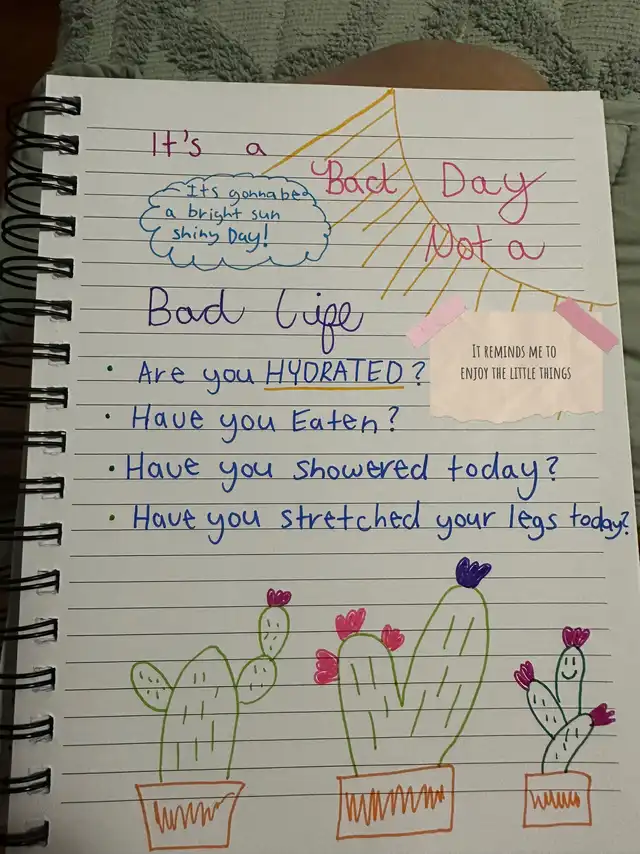 It's a
Bad Day
Its gonnabea
a bright sun
shiny Day!
Not a
Bad Life
IT REMINDS ME TO
ENJOY THE LITTLE THINGS
• Are you HYDRATED?
• Have you Eaten?
• Have you showered today?
• Have you stretched your legs today?